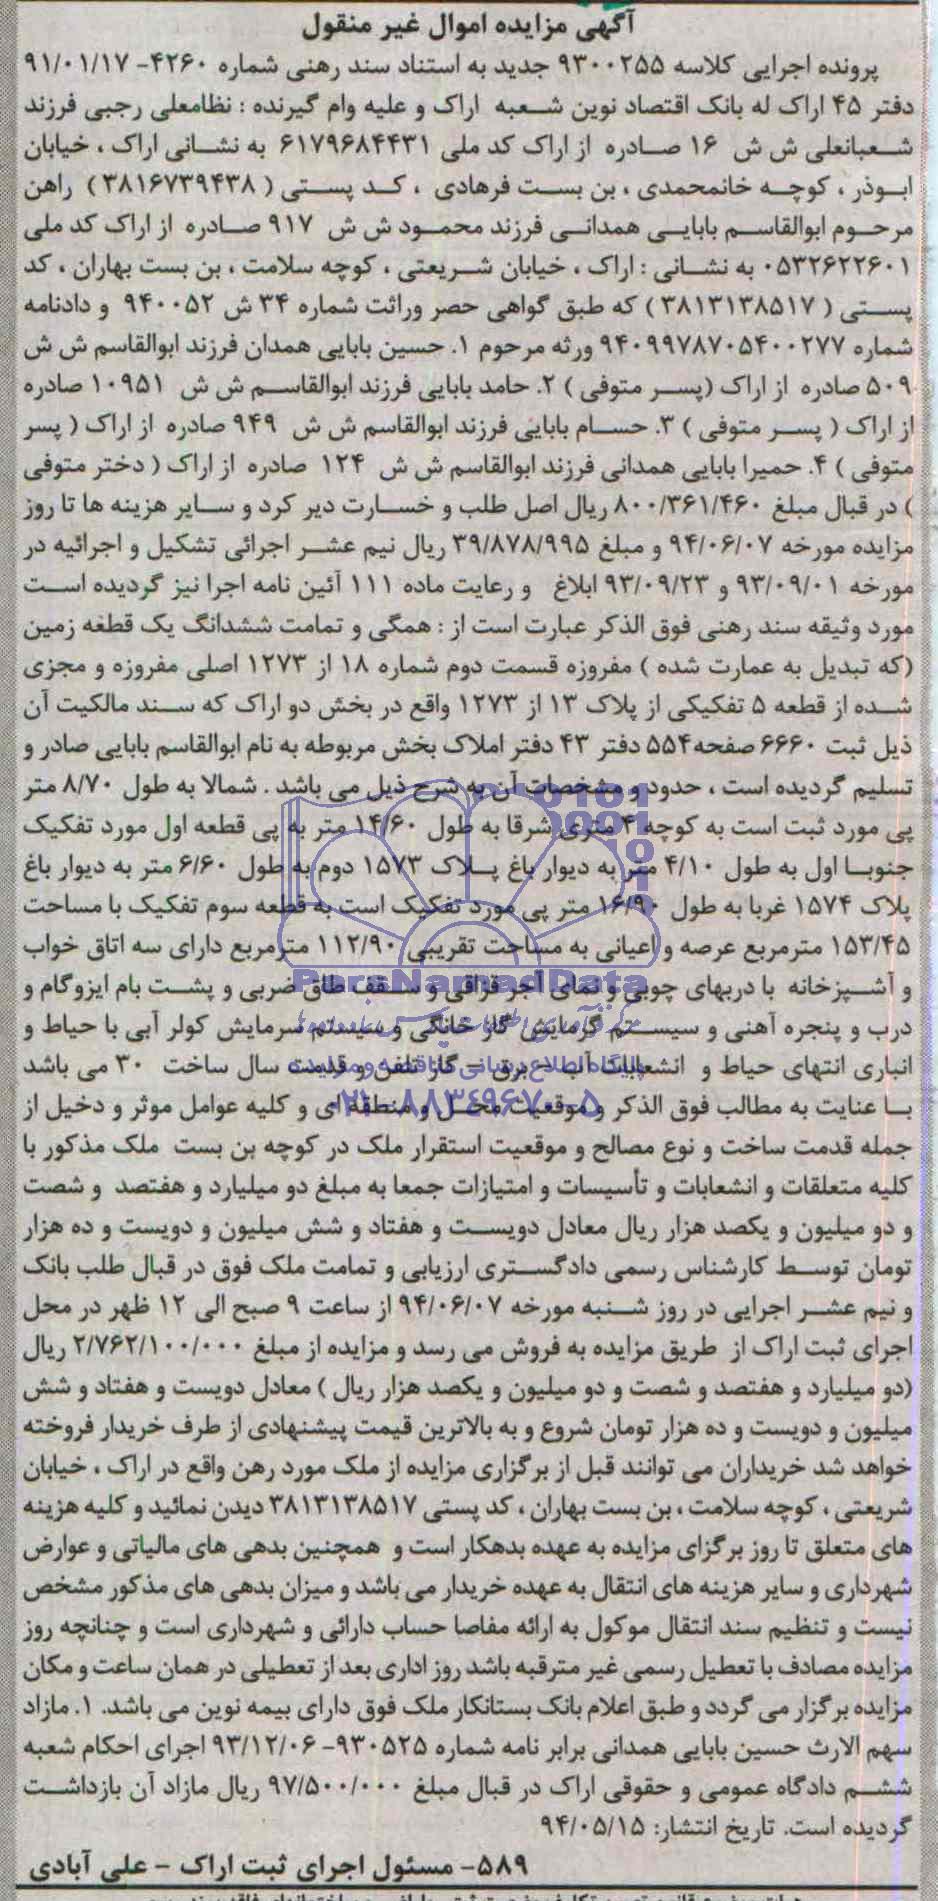 آگهی مزایده اموال غیر منقول
پرونده اجرایی کلاسه ۹۳۰۰۲۵۵ جدید به استناد سند رهنی شماره ۴۲۶۰- ۹۱/۰۱/۱۷
دفتر ۴۵ اراک له بانک اقتصاد نوین شعبه اراک و علیه وام گیرنده : نظامعلی رجبی فرزند
شعبانعلی ش ش ۱۶ صادره از اراک کد ملی ۶۱۷۹۶۸۴۴۳۱ به نشانی اراک ، خیابان
ابوذر ، کوچه خانمحمدی ، بن بست فرهادی ، کد پستی ( ۳۸۱۶۷۳۹۴۳۸ ) راهن
مرحوم ابوالقاسم بابایی همدانی فرزند محمود ش ش ۹۱۷ صادره از اراک کد ملی
۰۵۳۲۶۲۲۶۰۱ به نشانی : اراک ، خیابان شریعتی ، کوچه سلامت ، بن بست بهاران ، کد
پستی ( ۳۸۱۳۱۳۸۵۱۷ ) که طبق گواهی حصر وراثت شماره ۳۴ ش ۹۴۰۰۵۲ و دادنامه
شماره ۹۴۰۹۹۷۸۷۰۵۴۰۰۲۷۷ ورثه مرحوم ۱. حسین بابایی همدان فرزند ابوالقاسم ش ش
۵۰۹ صادره از اراک (پسر متوفی ) ۲. حامد بابایی فرزند ابوالقاسم ش ش ۱۰۹۵۱ صادره
از اراک ( پسر متوفی ) ۳. حسام بابایی فرزند ابوالقاسم ش ش ۹۴۹ صادره از اراک ( پسر
متوفی ) ۴. حمیرا بابایی همدانی فرزند ابوالقاسم ش ش ۱۲۴ صادره از اراک ( دختر متوفی
) در قبال مبلغ ۸۰۰/۳۶۱/۴۶۰ ریال اصل طلب و خسارت دیر کرد و سایر هزینه ها تا روز
مزایده مورخه ۹۴/۰۶/۰۷ و مبلغ ۳۹/۸۷۸/۹۹۵ ریال نیم عشر اجرائی تشکیل و اجرائیه در
مورخه ۹۳/۰۹/۰۱ و ۹۳/۰۹/۲۳ ابلاغ و رعایت ماده ۱۱۱ آئین نامه اجرا نیز گردیده است
مورد وثیقه سند رهنی فوق الذکر عبارت است از : همگی و تمامت ششدانگ یک قطعه زمین
(که تبدیل به عمارت شده ) مفروزه قسمت دوم شماره ۱۸ از ۱۲۷۳ اصلی مفروزه و مجزی
شده از قطعه ۵ تفکیکی از پلاک ۱۳ از ۱۲۷۳ واقع در بخش دو اراک که سند مالکیت آن
ذیل ثبت ۶۶۶۰ صفحه۵۵۴ دفتر ۴۳ دفتر املاک بخش مربوطه به نام ابوالقاسم بابایی صادر و
تسلیم گردیده است ، حدود و مشخصات آن به شرح ذیل می باشد . شمالا به طول ۸/۷۰ متر
پی مورد ثبت است به کوچه ۴ متری شرقا به طول ۱۴/۶۰ متر به پی قطعه اول مورد تفکیک
جنوبا اول به طول ۴/۱۰ متر به دیوار باغ پلاک ۱۵۷۳ دوم به طول ۶/۶۰ متر به دیوار باغ
پلاک ۱۵۷۴ غربا به طول ۱۶/۹۰ متر پی مورد تفکیک است به قطعه سوم تفکیک با مساحت
۱۵۳/۴۵ مترمربع عرصه و اعیانی به مساحت تقریبی ۱۱۲/۹۰ مترمربع دارای سه اتاق خواب
و آشپزخانه با دربهای چوبی و نمای آجر قزاقی و سقف طاق ضربی و پشت بام ایزوگام و
درب و پنجره آهنی و سیستم گرمایش گاز خانگی و سیستم سرمایش کولر آبی با حیاط و
انباری انتهای حیاط و انشعابات آب - برق - گاز تلفن و قدمت سال ساخت ۳۰ می باشد
با عنایت به مطالب فوق الذکر و موقعیت محل و منطقه ای و کلیه عوامل موثر و دخیل از
جمله قدمت ساخت و نوع مصالح و موقعیت استقرار ملک در کوچه بن بست ملک مذکور با
کلیه متعلقات و انشعابات و تأسیسات و امتیازات جمعا به مبلغ دو میلیارد و هفتصد و شصت
و دو میلیون و یکصد هزار ریال معادل دویست و هفتاد و شش میلیون و دویست و ده هزار
تومان توسط کارشناس رسمی دادگستری ارزیابی و تمامت ملک فوق در قبال طلب بانک
و نیم عشر اجرایی در روز شنبه مورخه ۹۴/۰۶/۰۷ از ساعت ۹ صبح الی ۱۲ ظهر در محل
اجرای ثبت اراک از طریق مزایده به فروش می رسد و مزایده از مبلغ ۲/۷۶۲/۱۰۰/۰۰۰ ریال
(دو میلیارد و هفتصد و شصت و دو میلیون و یکصد هزار ریال ) معادل دویست و هفتاد و شش
میلیون و دویست و ده هزار تومان شروع و به بالاترین قیمت پیشنهادی از طرف خریدار فروخته
خواهد شد خریداران می توانند قبل از برگزاری مزایده از ملک مورد رهن واقع در اراک ، خیابان
شریعتی ، کوچه سلامت ، بن بست بهاران ، کد پستی ۳۸۱۳۱۳۸۵۱۷ دیدن نمائید و کلیه هزینه
های متعلق تا روز برگزای مزایده به عهده بدهکار است و همچنین بدهی های مالیاتی و عوارض
شهرداری و سایر هزینه های انتقال به عهده خریدار می باشد و میزان بدهی های مذکور مشخص
نیست و تنظیم سند انتقال موکول به ارائه مفاصا حساب دارائی و شهرداری است و چنانچه روز
مزایده مصادف با تعطیل رسمی غیر مترقبه باشد روز اداری بعد از تعطیلی در همان ساعت و مکان
مزایده برگزار می گردد و طبق اعلام بانک بستانکار ملک فوق دارای بیمه نوین می باشد. ۱. مازاد
سهم الارث حسین بابایی همدانی برابر نامه شماره ۹۳۰۵۲۵- ۹۳/۱۲/۰۶ اجرای احکام شعبه
ششم دادگاه عمومی و حقوقی اراک در قبال مبلغ ۹۷/۵۰۰/۰۰۰ ریال مازاد آن بازداشت
گردیده است. تاریخ انتشار: ۹۴/۰۵/۱۵
۵۸۹- مسئول اجرای ثبت اراک - علی آبادی
ParsNamadData
پایگاه اطلاع رسانی مناقصه و مزایده